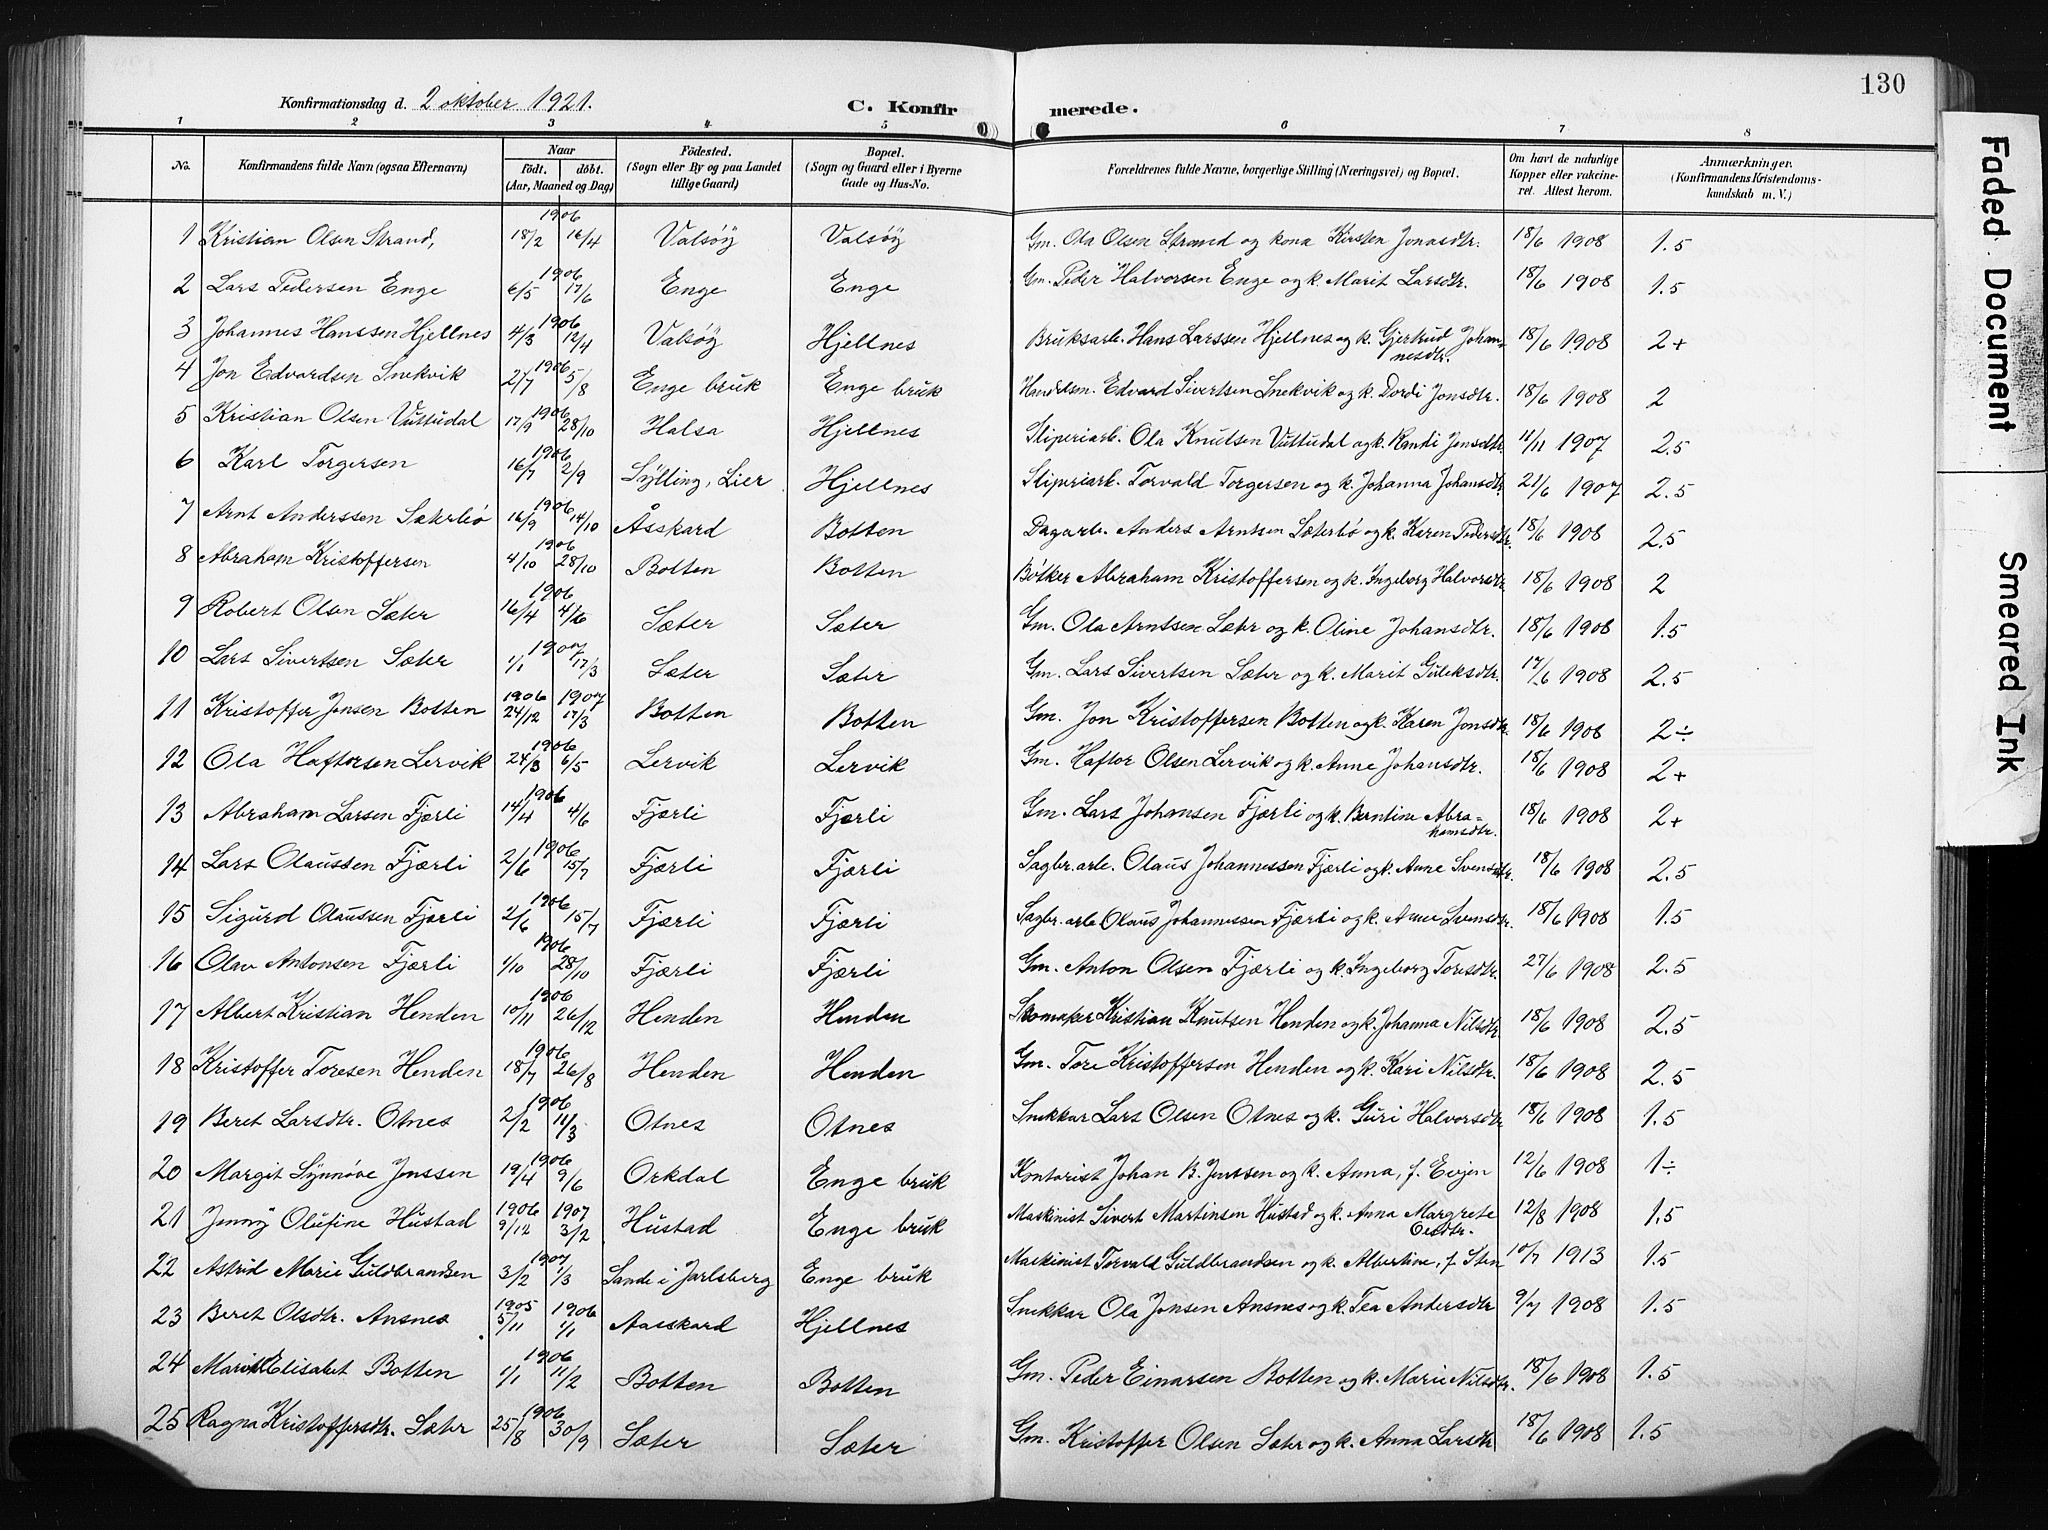 130
Konfirmationsdag d. 2 oktober 1921. C. Konfirmerede.
1 2 3 4 5 6 7 8
No. Konfirmandens fulde Navn (ogsaa Efternavn) Naar Født. døbt. (Aar, Maaned og Dag) Fødested. (Sogn eller By og paa Landet tillige Gaard) Bopæl. (Sogn og Gaard eller i Byerne Gade og Hus-No. Forældrenes fulde Navne, borgerlige Stilling (Næringsvei) og Bopæl. Om havt de naturlige Kopper eller vakcineret. Attest herom. Anmærkninger. (Konfirmandens Kristendomskundskab m. V.)
1 Kristian Olsen Strand, 1906 18/2 16/4 Valsøy Valsøy Gm. Ola Olsen Strand og kona Kirsten Jonasdtr. 18/6 1908 1.5
2 Lars Pedersen Enge 1906 6/5 17/6 Enge Enge Gm. Peder Halvorsen Enge og k. Marit Larsdtr. 18/6 1908 1.5
3 Johannes Hanssen Hjellnes 1906 4/3 12/4 Valsøy Hjellnes Bruksarb. Hans Larssen Hjellnes og k. Gjertrud Johannesdtr. 18/6 1908 2+
4 Jon Edvardsen Snekvik 1906 2/7 5/8 Enge bruk Enge bruk Handelsm. Edvard Sivertsen Snekvik og k. Dordi Jonsdtr. 18/6 1908 2
5 Kristian Olsen Vuttudal 1906 17/9 28/10 Halsa Hjellnes Sliperiarb. Ola Knutsen Vuttudal og k. Randi Jonsdtr. 11/11 1907 2.5
6 Karl Torgersen 1906 16/7 2/9 Sylling, Lier Hjellnes Sliperiarb. Torvald Torgersen og k. Johanna Johansdtr. 21/6 1907 2.5
7 Arnt Anderssen Sæterbø 1906 16/9 14/10 Åsskard Botten Dagarb. Anders Arntsen Sæterbø og k. Karen Pedersdtr. 18/6 1908 2.5
8 Abraham Kristoffersen 1906 4/10 28/10 Botten Botten Bøtker Abraham Kristoffersen og k. Ingeborg Halvorsdtr. 18/6 1908 2
9 Robert Olsen Sæter 1906 16/4 4/6 Sæter Sæter Gm. Ola Arntsen Sæter og k. Oline Johansdtr. 18/6 1908 1.5
10 Lars Sivertsen Sæter 1907 1/1 17/3 Sæter Sæter Gm. Lars Sivertsen Sæter og k. Marit Guleksdtr. 17/6 1908 2.5
11 Kristoffer Jonsen Botten 1906 24/12 1907 17/3 Botten Botten Gm. Jon Kristoffersen Botten og k. Karen Jonsdtr. 18/6 1908 2÷
12 Ola Haftorsen Lervik 1906 24/3 6/5 Lervik Lervik Gm. Haftor Olsen Lervik og k. Anne Johansdtr. 18/6 1908 2+
13 Abraham Larsen Fjærli 1906 14/4 4/6 Fjærli Fjærli Gm. Lars Johansen Fjærli og k. Berntine Abrahamsdtr. 18/6 1908 2+
14 Lars Olaussen Fjærli 1906 2/6 15/7 Fjærli Fjærli Sagbr.arb. Olaus Johannessen Fjærli og k. Anne Svensdtr. 18/6 1908 2.5
15 Sigurd Olaussen Fjærli 1906 2/6 15/7 Fjærli Fjærli Sagbr.arb. Olaus Johannessen Fjærli og k. Anne Svensdtr. 18/6 1908 1.5
16 Olav Antonsen Fjærli 1906 1/10 28/10 Fjærli Fjærli Gm. Anton Olsen Fjærli og k. Ingeborg Toresdtr. 27/6 1908 2.5
17 Albert Kristian Henden 1906 10/11 26/12 Henden Henden Skomaker Kristian Knutsen Henden og k. Johanna Nilsdtr. 18/6 1908 2.5
18 Kristoffer Toresen Henden 1906 18/7 26/8 Henden Henden Gm. Tore Kristoffersen Henden og k. Kari Nilsdtr. 18/6 1908 2.5
19 Beret Larsdtr. Otnes 1906 2/2 11/3 Otnes Otnes Snekkar Lars Olsen Otnes og k. Guri Halvorsdtr. 18/6 1908 1.5
20 Margit Synnøve Jenssen 1906 19/4 9/6 Orkdal Enge bruk Kontorist Johan B. Jenssen og k. Anna, f. Evjen 12/6 1908 1÷
21 Jenny Olufine Hustad 1906 9/12 1907 3/2 Hustad Enge bruk Maskinist Sivert Martinsen Hustad og k. Anna Margrete Olsdtr. 12/8 1908 1.5
22 Astrid Marie Guldbrandsen 1907 3/2 1/3 Sande i Jarlsberg Enge bruk Maskinist Torvald Guldbrandsen og k. Albertine, f. Sten 10/7 1913 1.5
23 Beret Olsdtr. Ansnes 1905 5/11 1906 1/1 Aasskard Hjellnes Snekkar Ola Jonsen Ansnes og k. Tea Andersdtr 9/7 1908 1.5
24 Marit Elisabet Botten 1906 1/1 11/2 Botten Botten Gm. Peder Einarsen Botten og k. Marie Nilsdtr. 18/6 1908 1.5
25 Ragna Kristoffersdtr. Sæter 1906 25/8 30/9 Sæter Sæter Gm. Kristoffer Olsen Sæter og k. Anna Larsdtr 18/6 1908 1.5
Faded Document
Smeared Ink